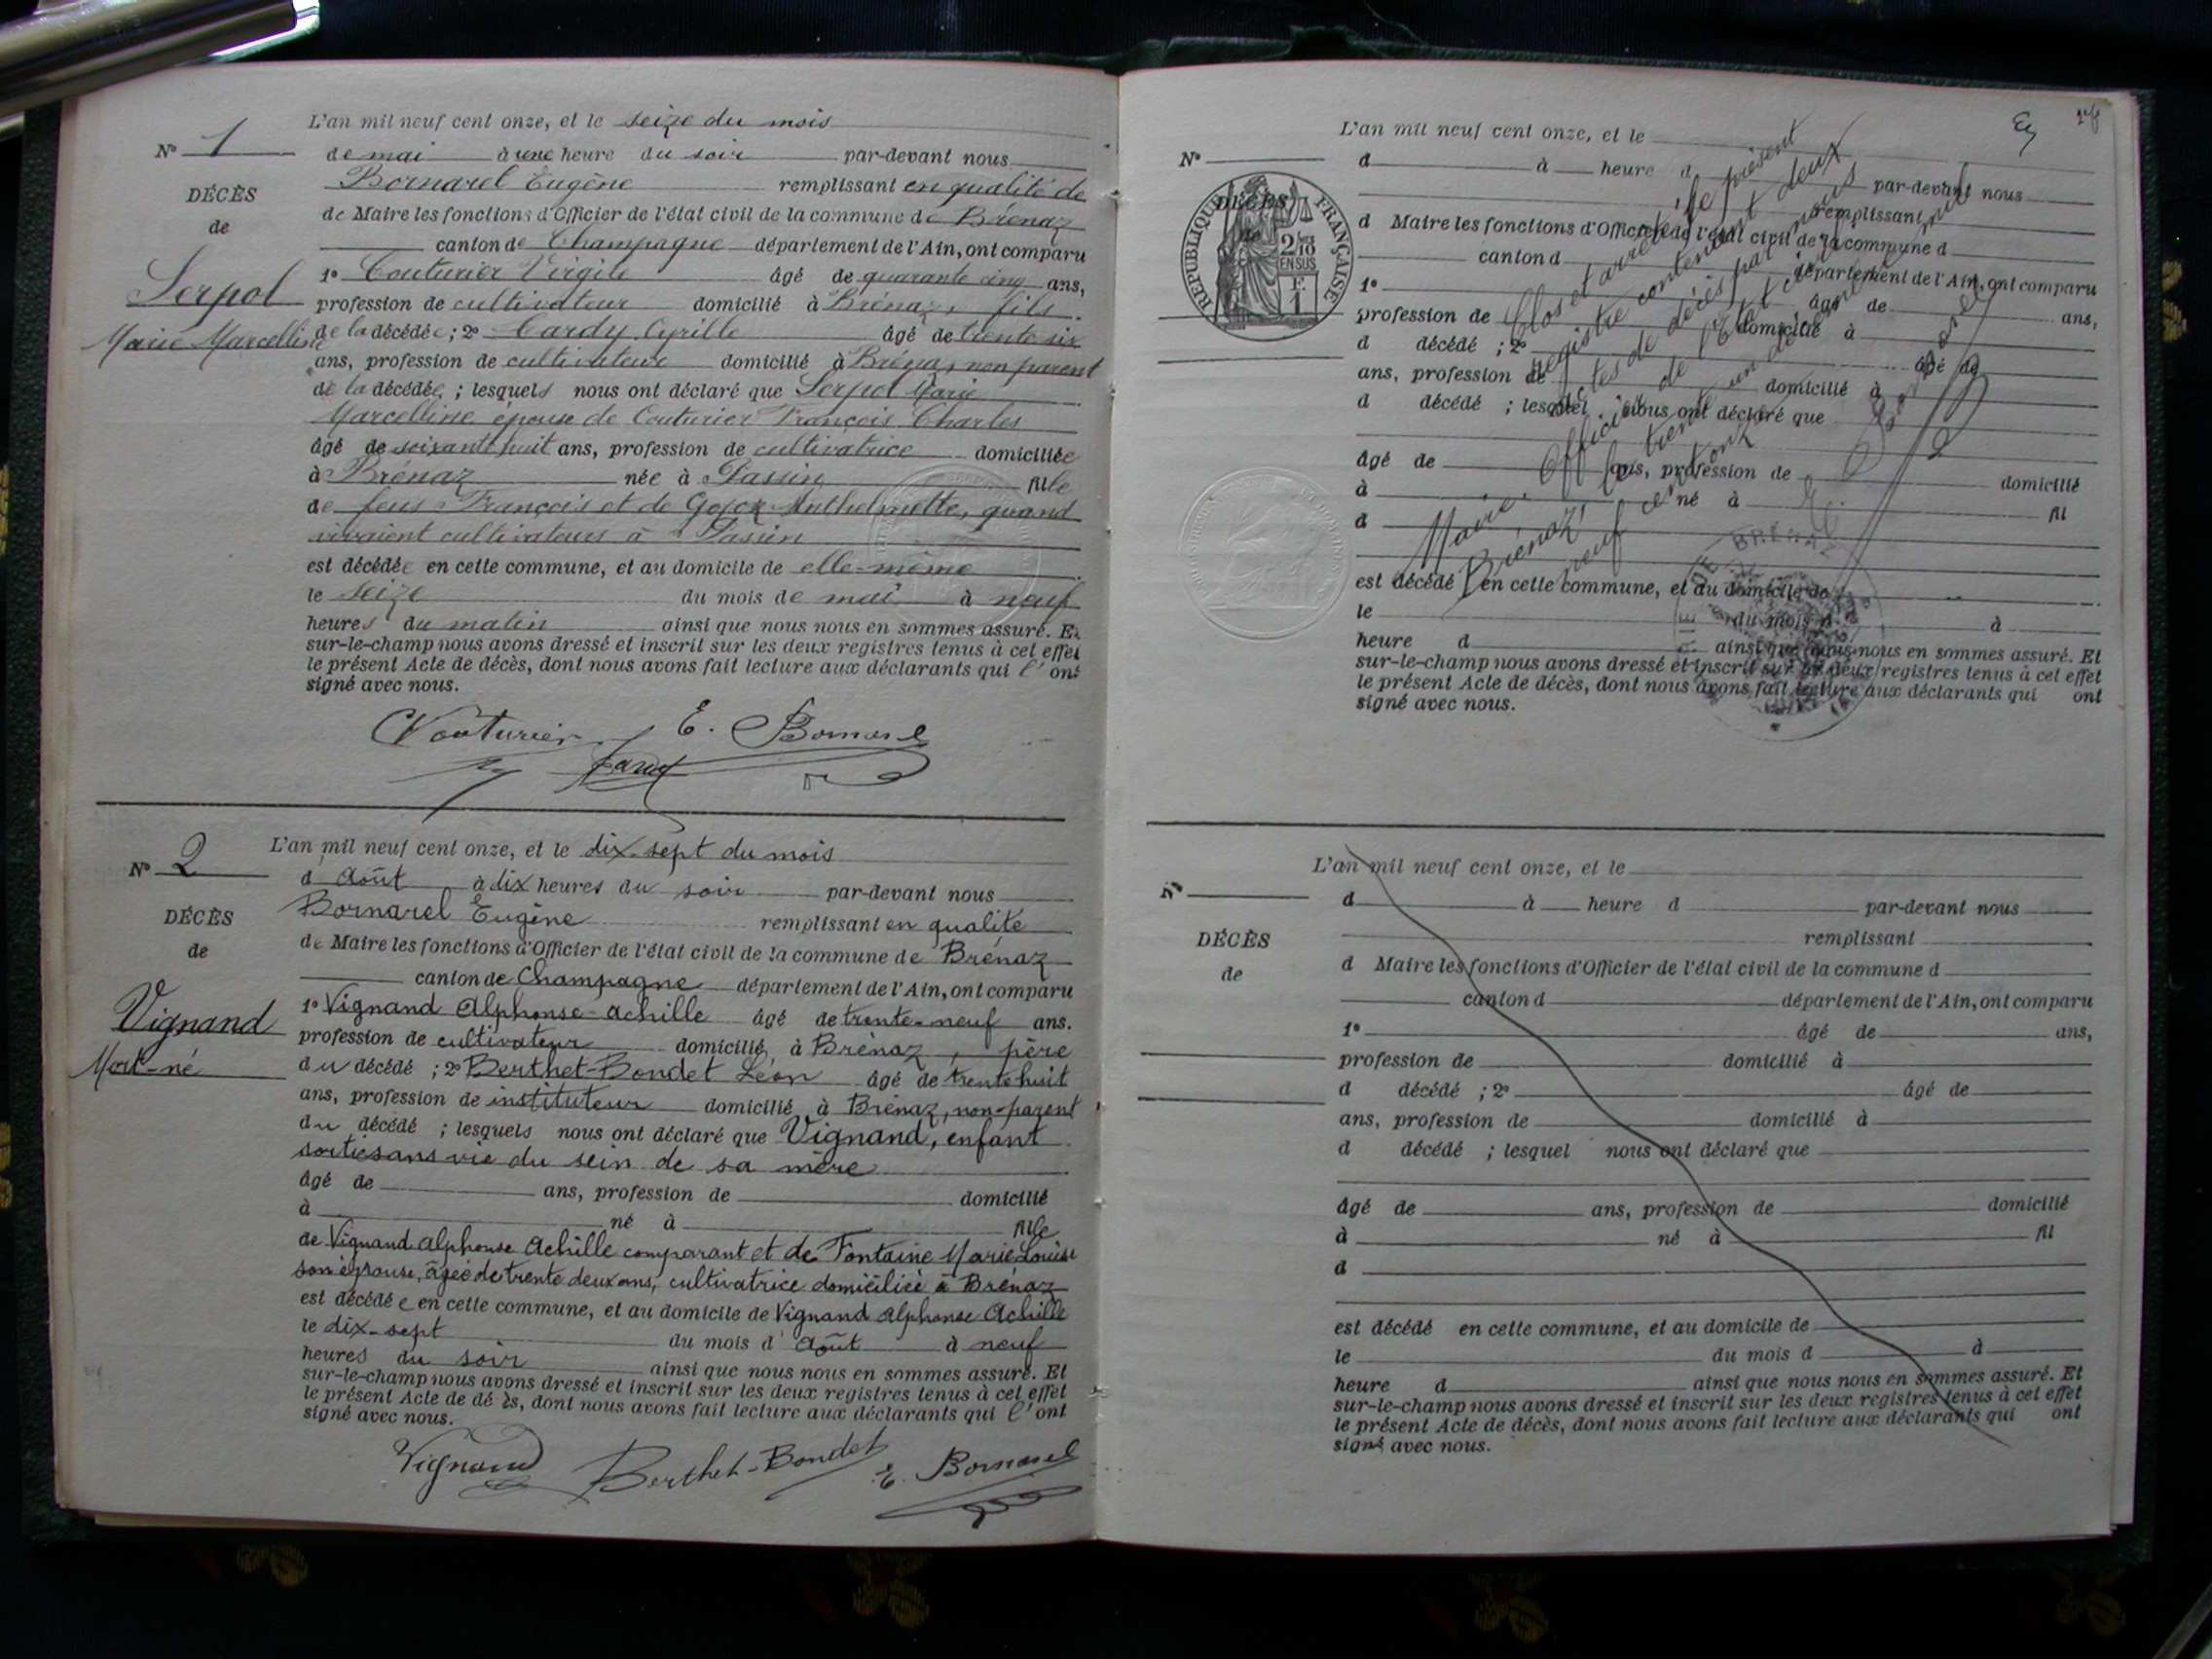 L'an mil neuf cent onze, et le seize du mois
N° 1
de mai à une heure du soir par-devant nous
Bornarel Eugène remplissant en qualité de
DÉCÈS
de Maire les fonctions d'Officier de l'état civil de la commune de Brénaz
de
canton de Champagne département de l'Ain, ont comparu
Serpol
1° Couturier Virgile âgé de quarante cinq ans,
profession de cultivateur domicilié à Brénaz, fils
Marie Marcelline
de la décédée ; 2° Cardy Cyrille âgé de trente six
ans, profession de cultivateur domicilié à Brénaz, non parent
de la décédée ; lesquels nous ont déclaré que Serpol Marie
Marcelline épouse de Couturier François Charles
âgé de soixante huit ans, profession de cultivatrice domiciliée
à Brénaz née à Passin fille
de feus François et de Anthelmette, quand
vivaient cultivateurs à Passin
est décédée en cette commune, et au domicile de elle-même
le seize du mois de mai à neuf
heures du matin ainsi que nous nous en sommes assuré. Et
sur-le-champ nous avons dressé et inscrit sur les deux registres tenus à cet effet
le présent Acte de décès, dont nous avons fait lecture aux déclarants qui l'ont
signé avec nous.
Couturier E. Bornarel
Cardy
L'an mil neuf cent onze, et le dix-sept du mois
N° 2
d'Août à dix heures du soir par-devant nous
Bornarel Eugène remplissant en qualité
DÉCÈS
de Maire les fonctions d'Officier de l'état civil de la commune de Brénaz
de
canton de Champagne département de l'Ain, ont comparu
Vignand
1° Vignand Alphonse-Achille âgé de trente-neuf ans.
profession de cultivateur domicilié à Brénaz, père
Mort-né
du décédé ; 2° Berthet-Bondet Léon âgé de trente huit
ans, profession de instituteur domicilié à Brénaz, non-parent
du décédé ; lesquels nous ont déclaré que Vignand, enfant
sortie sans vie du sein de sa mère
âgé de ans, profession de domicilié
à né à fille
de Vignand Alphonse Achille comparant et de Fontaine Marie Louise
son épouse, âgée de trente deux ans, cultivatrice domiciliée à Brénaz
est décédée en cette commune, et au domicile de Vignand Alphonse Achille
le dix-sept du mois d'Août à neuf
heures du soir ainsi que nous nous en sommes assuré. Et
sur-le-champ nous avons dressé et inscrit sur les deux registres tenus à cet effet
le présent Acte de dé ès, dont nous avons fait lecture aux déclarants qui l'ont
signé avec nous.
Vignand Berthet-Bondet E. Bornarel
L'an mil neuf cent onze, et le
N°
d à heure d par-devant nous
remplissant
DÉCÈS
de
RÉPUBLIQUE FRANÇAISE
2/10 EN SUS
d Maire les fonctions d'Officier de l'état civil de la commune d
canton d département de l'Ain, ont comparu
1° âgé de ans,
profession de domicilié à
d décédé ; 2° âgé de
ans, profession de domicilié à
d décédé ; lesquel nous ont déclaré que
âgé de ans, profession de domicilié
à né à fil
d
est décédé en cette commune, et au domicile de
le du mois d à
heure d ainsi que nous nous en sommes assuré. Et
sur-le-champ nous avons dressé et inscrit sur les deux registres tenus à cet effet
le présent Acte de décès, dont nous avons fait lecture aux déclarants qui ont
signé avec nous.
Clos et arrêté le présent
registre contenant deux
actes de décès par nous
Maire, Officier de l'Etat civil
Brénaz, le trente un décembre mil
neuf cent onze
E. Bornarel
BRENAZ
L'an mil neuf cent onze, et le
N°
d à heure d par-devant nous
remplissant
DÉCÈS
d Maire les fonctions d'Officier de l'état civil de la commune d
de
canton d département de l'Ain, ont comparu
1° âgé de ans,
profession de domicilié à
d décédé ; 2° âgé de
ans, profession de domicilié à
d décédé ; lesquel nous ont déclaré que
âgé de ans, profession de domicilié
à né à fil
d
est décédé en cette commune, et au domicile de
le du mois d à
heure d ainsi que nous nous en sommes assuré. Et
sur-le-champ nous avons dressé et inscrit sur les deux registres tenus à cet effet
le présent Acte de décès, dont nous avons fait lecture aux déclarants qui ont
signé avec nous.